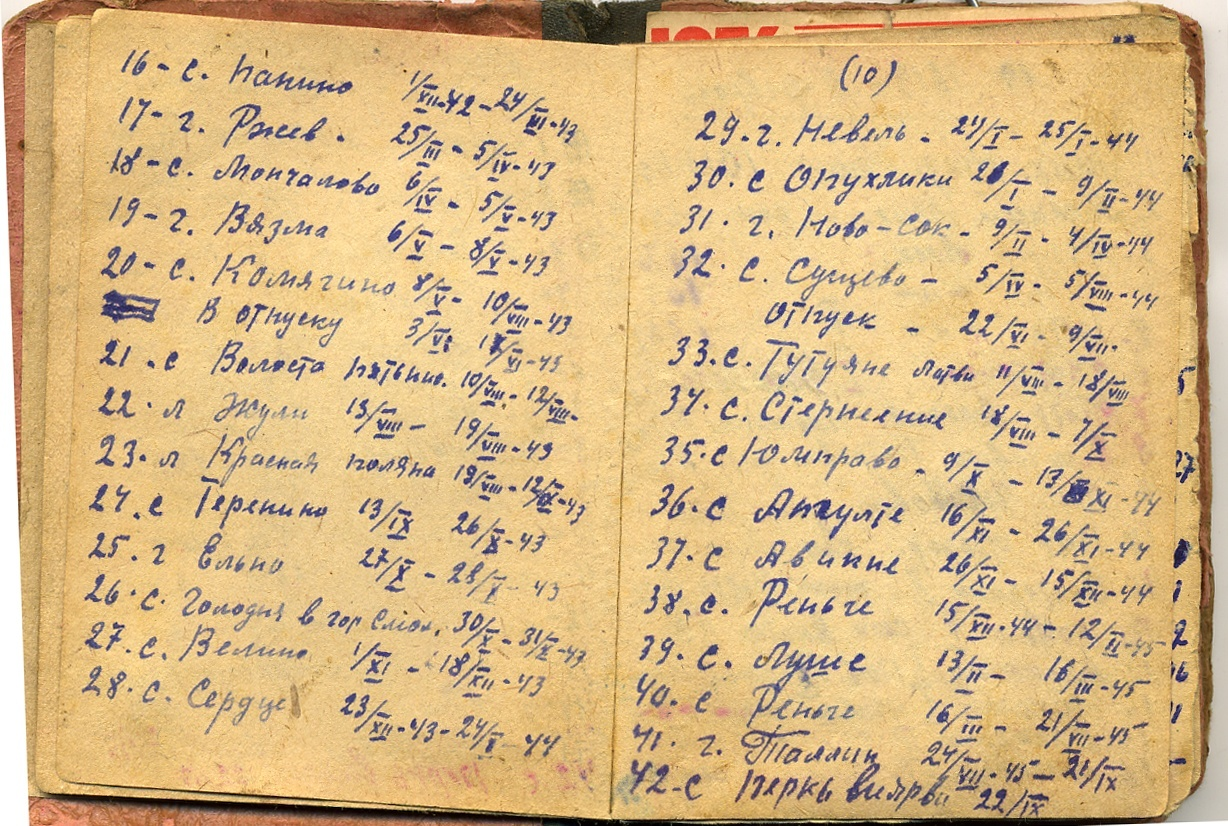 16 - с. Панино 1/XII-42 - 24/III-43
17 - г. Ржев. 25/III - 5/IV-43
18 - с. Мончалово 6/IV - 5/V-43
19 - г. Вязма 6/V - 8/V-43
20 - с. Комягино 8/V - 10/VIII-43
В отпуску 3/VI 17/VI-43
21. с Волоста пятниц. 10/VIII - 12/VIII-
22. л Жули 13/VIII - 19/VIII-43
23. л Красная поляна 19/VIII - 12/IX-43
24. с Теренино 13/IX 26/X-43
25. г Ельно 27/X - 28/X-43
26. с. Голодня в гор Смол. 30/X - 31/X-43
27. с. Велино 1/XI - 18/XII-43
28. с. Сердце 23/XII-43 - 24/I-44
(10)
29. г. Невель - 24/I - 25/I-44
30. с Опухлики 26/I - 9/II-44
31. г. Ново-Сок - 9/II - 4/IV-44
32. с. Сущево - 5/IV - 5/VIII-44
отпуск - 22/VI - 9/VII-
33. с. Тутуяне Латви 11/VIII - 18/VIII
34. с. Стернсене 18/VIII - 7/X
35. с Юмправо - 9/X - 13/XI-44
36. с Анчулте 16/XI - 26/XI-44
37. с Авикне 26/XI - 15/XII-44
38. с. Реньге 15/XII-44 - 12/II-45
39. с. Луше 13/II - 16/III-45
40. с Реньге 16/III - 21/VII-45
41. г. Таллин 24/VII-45 - 21/IX
42 - с 22/IX